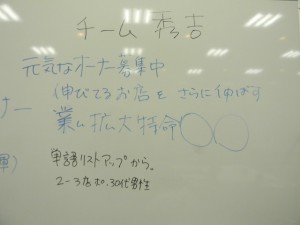 チーム 秀吉
元気なオーナー募集中
ナー
伸びてるお店をさらに伸ばす
業拡大特命○○
単語リストアップから。
2-3店 30代男性